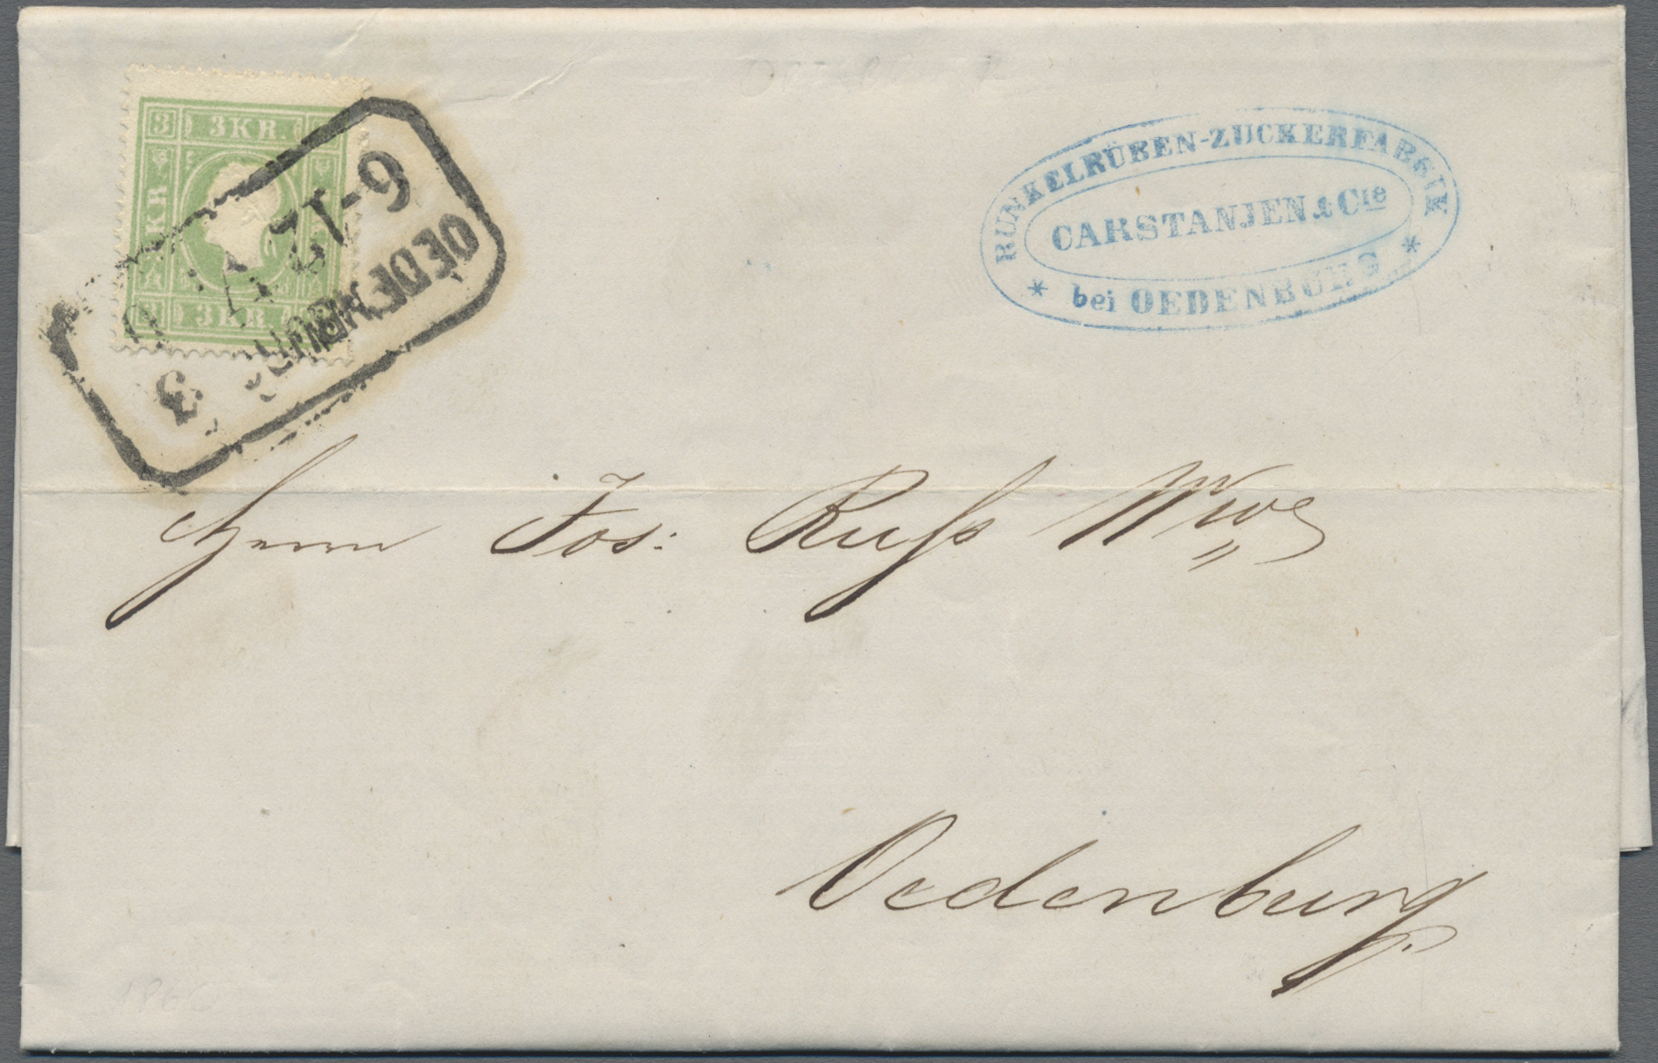 3 3KR.
KR
3KR.
OEDENBURG
6-12
3
RUNKELRÜBEN-ZUCKERFABRIK
CARSTANJEN & Cie
* bei OEDENBURG *
Herrn Jos: Russ Wwe
Oedenburg
1860